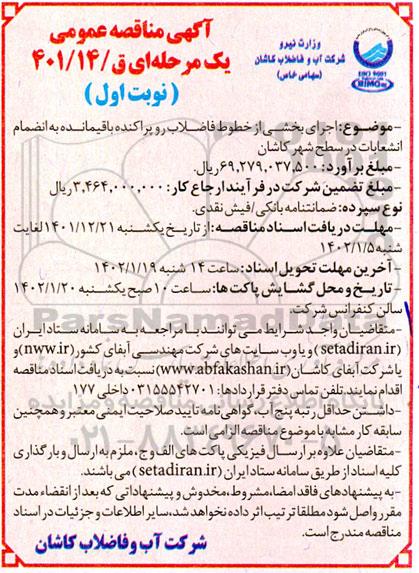 آگهی مناقصه عمومی
یک مرحله‌ای ق/۴۰۱/۱۴
(نوبت اول)
وزارت نیرو
شرکت آب و فاضلاب کاشان
(سهامی خاص)
ISO 9001
-موضوع: اجرای بخشی از خطوط فاضلاب رو پراکنده باقیمانده به انضمام
انشعابات در سطح شهر کاشان
-مبلغ برآورد: ۶۹,۲۷۹,۰۳۷,۵۰۰ریال.
-مبلغ تضمین شرکت در فرآیند ارجاع کار: ۳,۴۶۴,۰۰۰,۰۰۰ریال
نوع سپرده: ضمانتنامه بانکی/فیش نقدی.
-مهلت دریافت اسناد مناقصه: از تاریخ یکشنبه ۱۴۰۱/۱۲/۲۱لغایت
شنبه ۱۴۰۲/۱/۵
-آخرین مهلت تحویل اسناد: ساعت ۱۴ شنبه ۱۴۰۲/۱/۱۹
- تاریخ و محل گشایش پاکت‌ها: ساعت ۱۰ صبح یکشنبه ۱۴۰۲/۱/۲۰
سالن کنفرانس شرکت.
-متقاضیان واجد شرایط می توانند با مراجعه به سامانه ستاد ایران
(setadiran.ir) و یا وب سایت های شرکت مهندسی آبفای کشور(nww.ir)و
یا شرکت آبفای کاشان(www.abfakashan.ir)نسبت به دریافت اسناد مناقصه
اقدام نمایند.تلفن تماس دفتر قراردادها: ۰۳۱۵۵۵۴۲۷۰۱داخلی ۱۷۷
-داشتن حداقل رتبه پنج آب، گواهی نامه تایید صلاحیت ایمنی معتبر و همچنین
سابقه کار مشابه با موضوع مناقصه الزامی است.
-متقاضیان علاوه بر ارسال فیزیکی پاکت های الف و ج، ملزم به ارسال و بارگذاری
کلیه اسناد از طریق سامانه ستاد ایران (setadiran.ir) می باشند.
-به پیشنهادهای فاقد امضا، مشروط، مخدوش و پیشنهاداتی که بعد از انقضاء مدت
مقرر واصل شود مطلقا ترتیب اثر داده نخواهد شد، سایر اطلاعات و جزئیات در اسناد
مناقصه مندرج است.
شرکت آب و فاضلاب کاشان